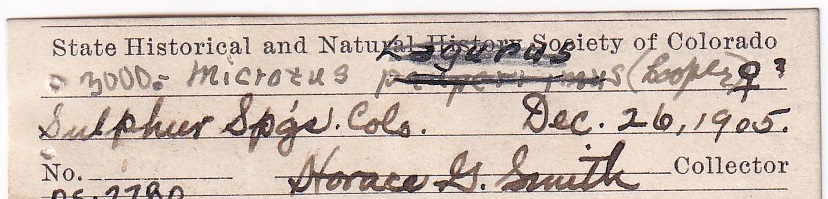 State Historical and Natural History Society of Colorado
Lagurus
3000. Microtus (Cooper) ♀?
Sulphur Spgs. Colo. Dec. 26, 1905.
No. Horace G. Smith Collector